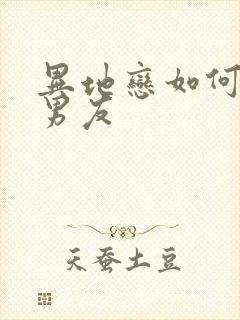 異地戀如何
男友
天蚕土豆